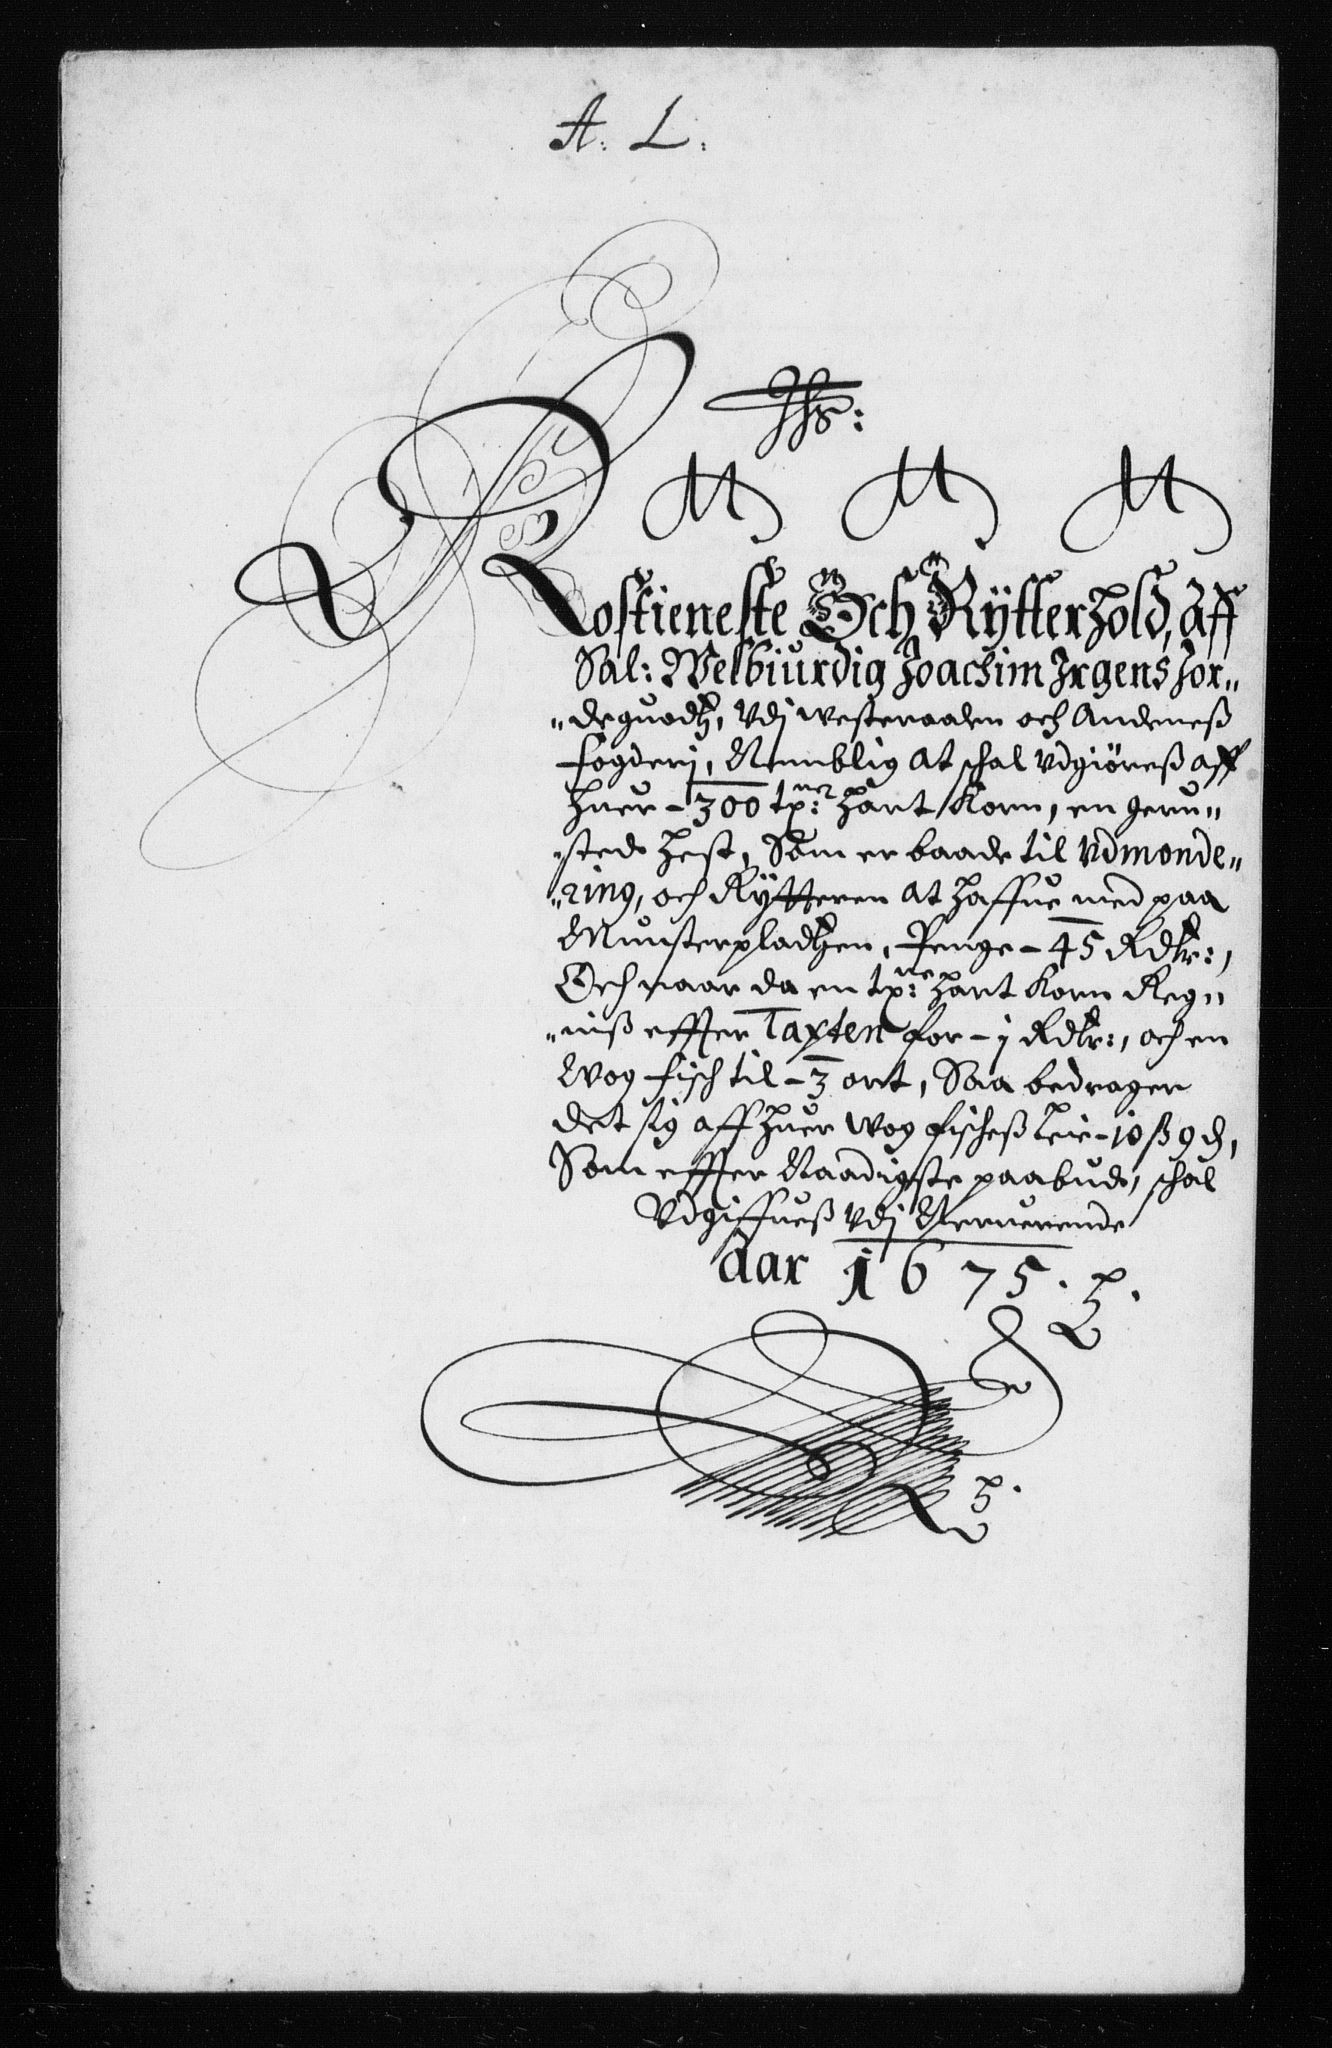 A. L.
Jhs:
Rostieneste Och Rÿtterhold, Aff
Sal: Welbiurdig Joachim Irgens Jor„
„deguodtz, Vdj Westeraalen och Andeneß
fogderj, Nemblig At schal Vdgiöreß aff
huer - 300 tp:ner Hart Korn, en geru„
„sted Hest, Som er baade til Vdmonde„
„ring, och Rÿtteren At Haffue med paa
Munsterpladtzen, Penge - 45 Rdlr:,
Och naar da en tp:ne Hart Korn Reg„
„niß effter Taxten for - 1 Rdlr:, och en
Wog fisch til - 3 ort, Saa bedrager
det sig aff huer Wog fischeß leie - 10 ß 9 d,
Som effter Naadigste paabud, schal
Vdgiffueß Vdj Neruerende
Aar 1675.